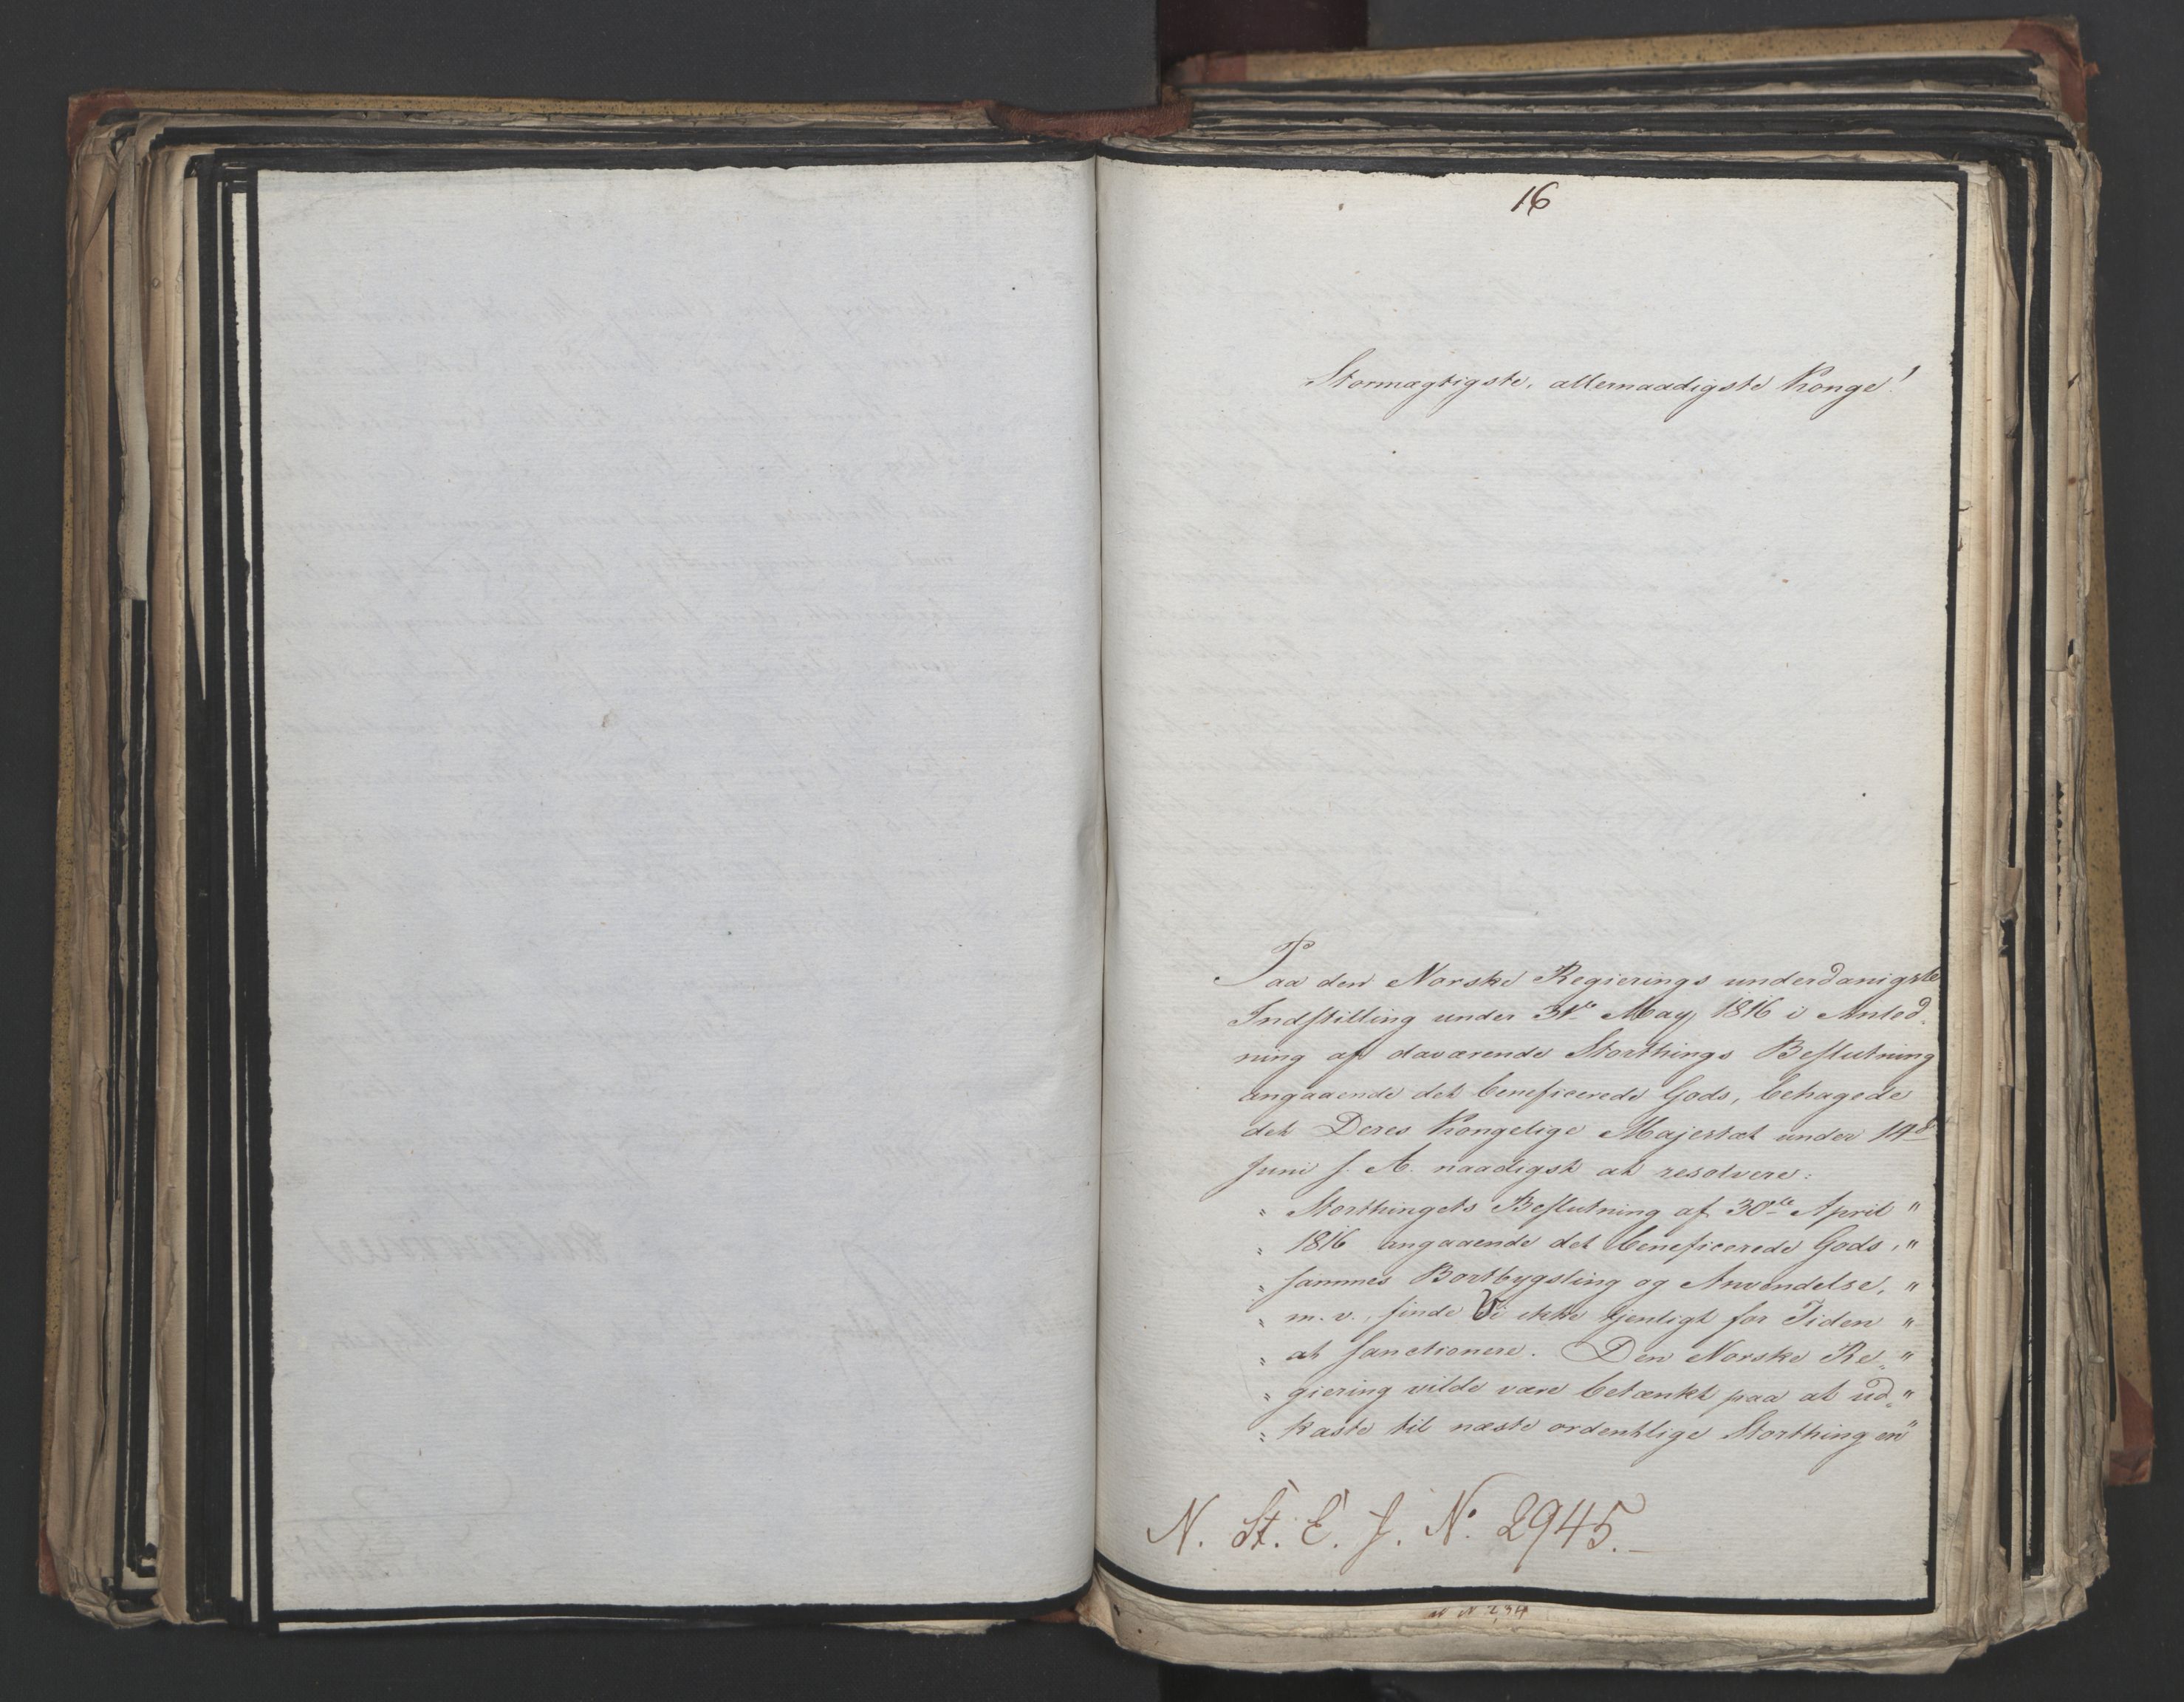 16
Stormægtigste, allernaadigste Konge!
Paa den Norske Regjerings underdanigste
Indstilling under 31te May 1816 i Anled-
ning af daværende Storthings Beslutning
angaaende det beneficerede Gods, behagede
det Deres Kongelige Majestæt under 14d
Juni s. A. naadigst at resolvere:
" Storthingets Beslutning af 30te April "
" 1816 angaaende det beneficerede Gods, "
" sammes Bortbygsling og Anvendelse, "
" m. v., finde Vi ikke tjenligt for Tiden "
" at sanctionere. Den Norske Re- "
" giering vilde være betænkt paa at ud- "
" kaste til næste ordentlige Storthing en "
N. St. E. J. No. 2945.